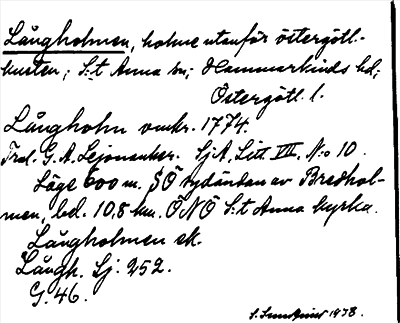 Långholmen, holme utanför östergötl.-
kusten; S:t Anna sn; Hammarkinds hd;
Östergötl. l.
Långholm omkr. 1774.
Trol. G. A. Lejonancker. SjA. Litt. VII. N:o 10.
Läge 600 m. SÖ sydändan av Bredhol-
men, bel. 10,8 km. ÖNÖ S:t Anna kyrka.
Långholmen ek.
Långh. Sj. 252.
G. 46.
1978.